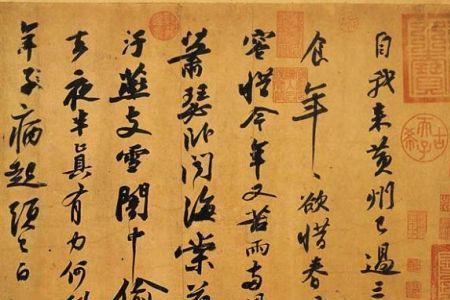 自我來黃州已過三
食年〻欲惜春
容惜今年又苦雨兩月
蕭瑟卧聞海棠花
汙燕支雪闇中偷
去夜半真有力何
年子病起頭已白
古希天子